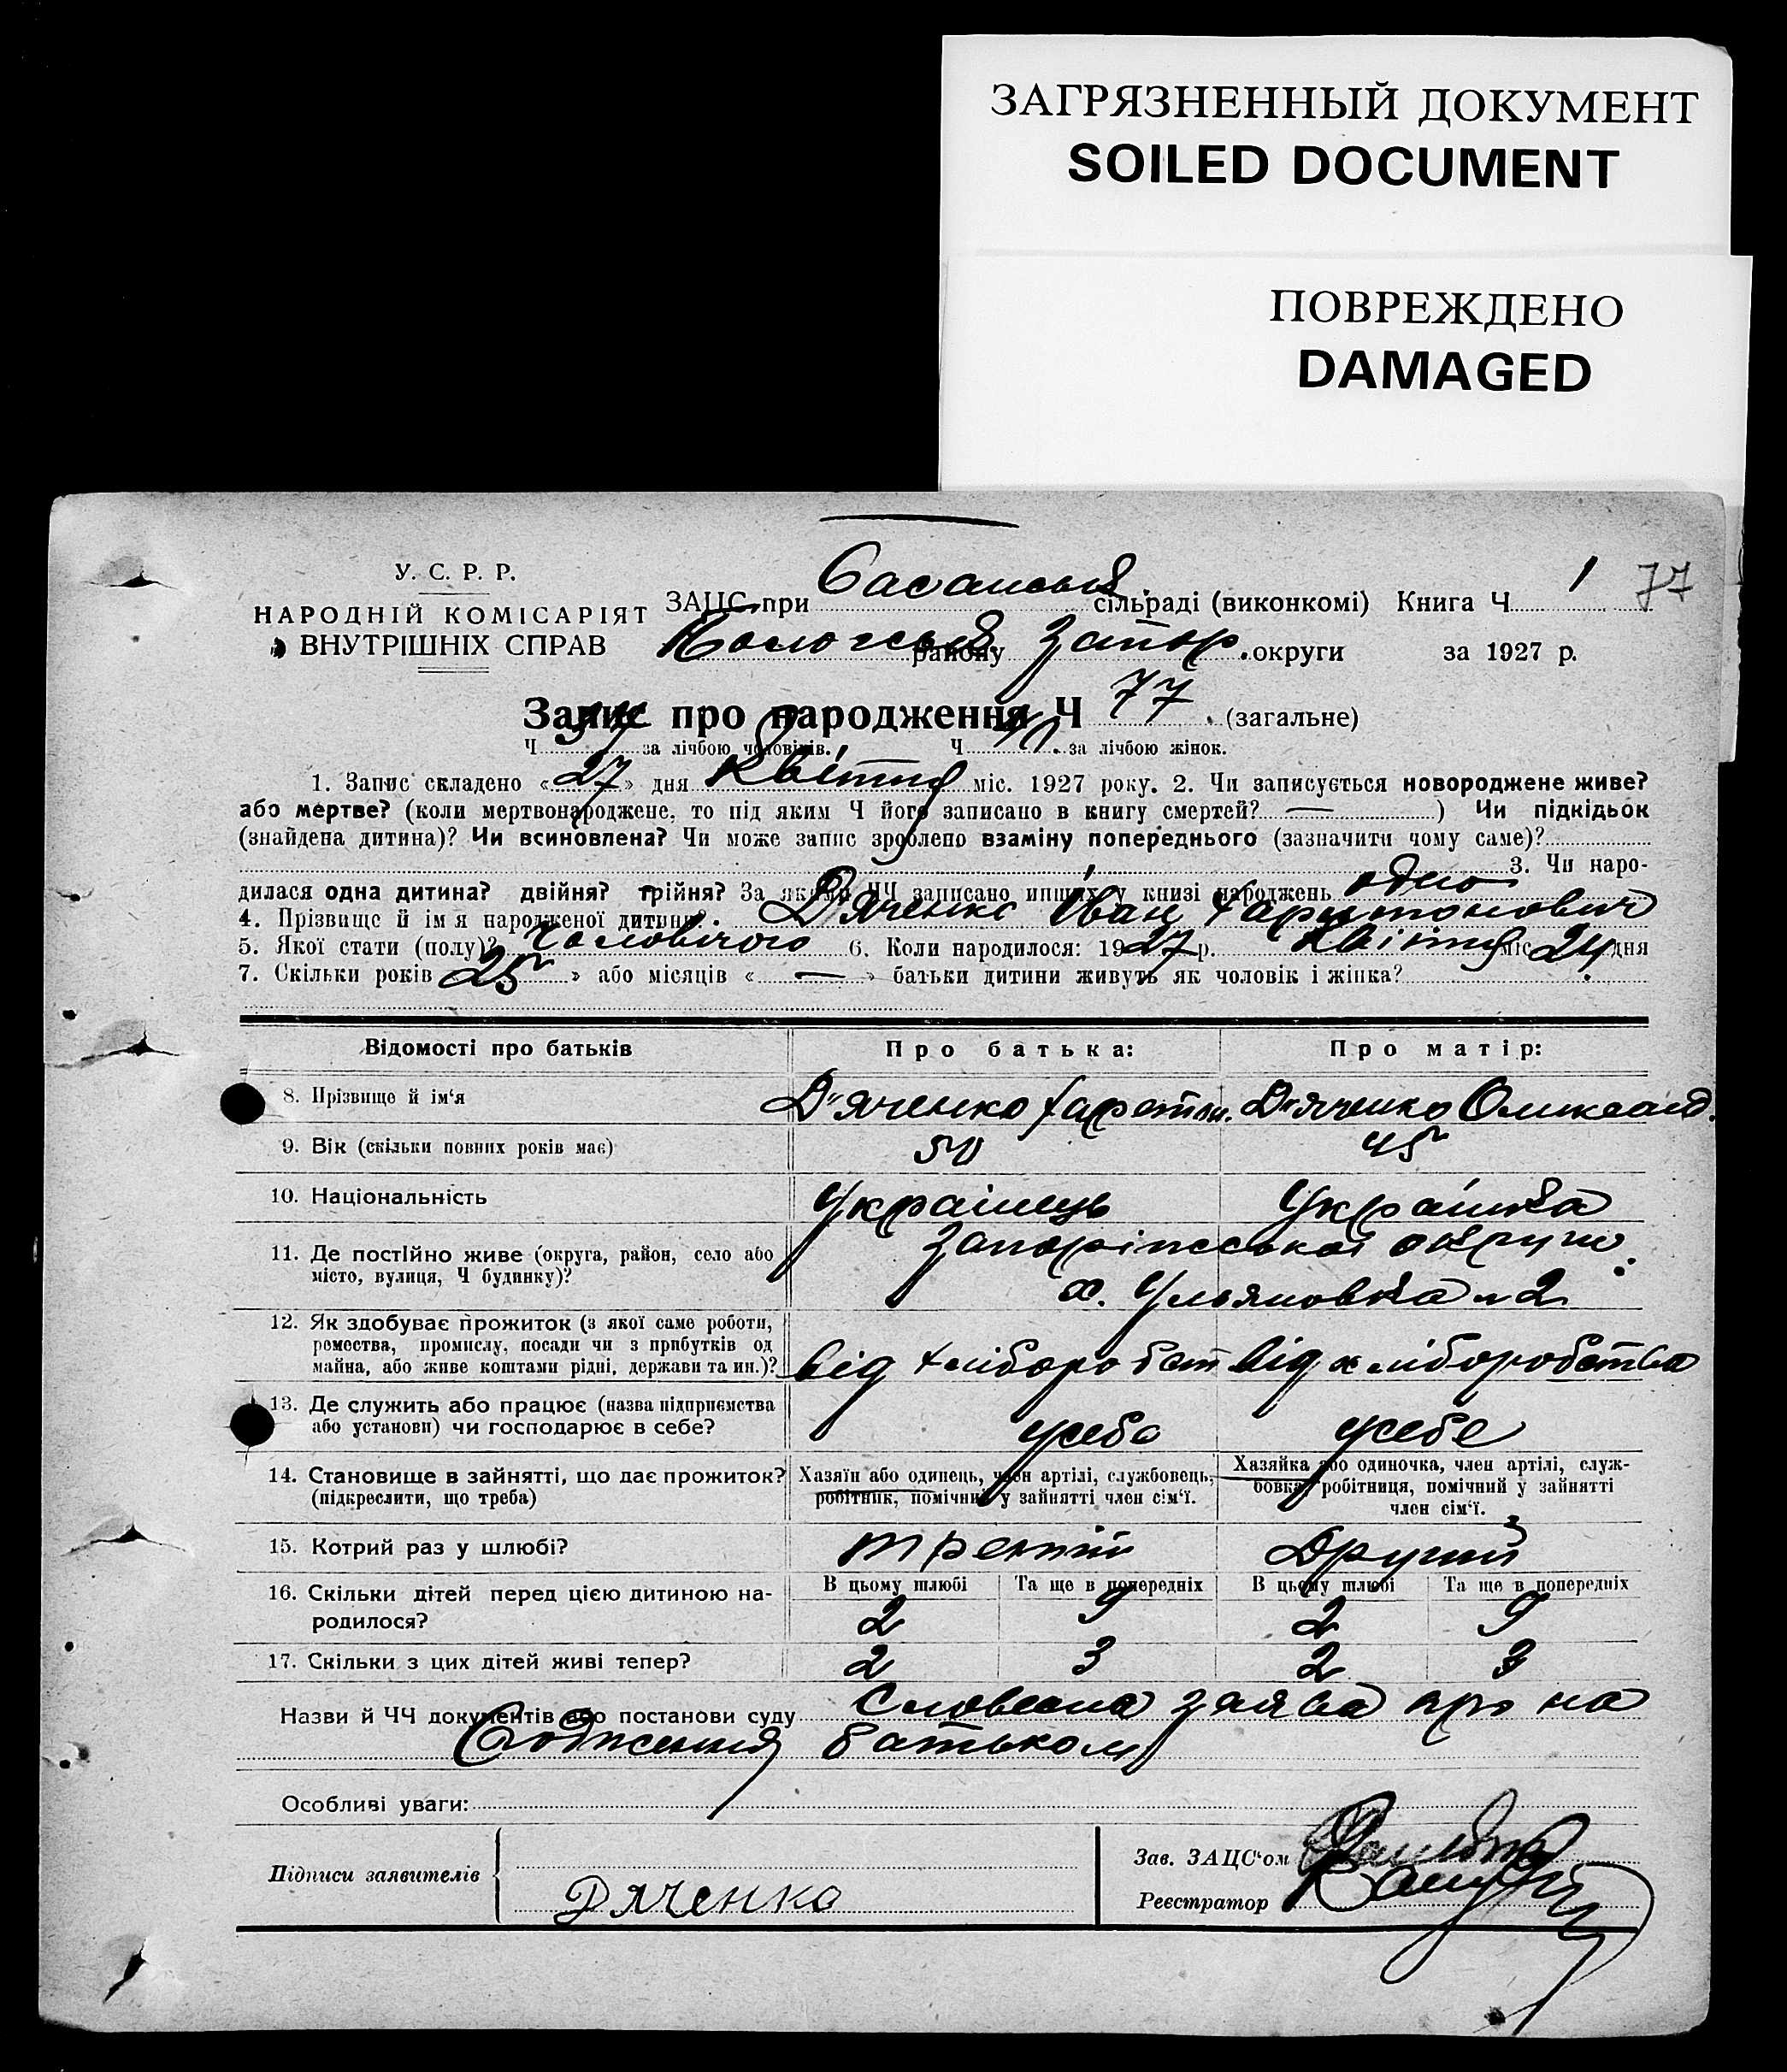 ЗАГРЯЗНЕННЫЙ ДОКУМЕНТ
SOILED DOCUMENT
ПОВРЕЖДЕНО
DAMAGED
У. С. Р. Р.
НАРОДНІЙ КОМІСАРІЯТ
ВНУТРІШНІХ СПРАВ
ЗАЦС при сільраді (виконкомі) Книга Ч. 1 77
району Запор. округи за 1927 р.
Запис про народження Ч 77 (загальне)
Ч. 37 за лічбою чоловіків. Ч. 40 за лічбою жінок.
1. Запис складено «27» дня Квітня міс. 1927 року. 2. Чи записується новороджене живе?
або мертве? (коли мертвонароджене, то під яким Ч його записано в книгу смертей? — ) Чи підкідьок
(знайдена дитина)? Чи всиновлена? Чи може запис зроблено взаміну попереднього (зазначити чому саме)?
3. Чи наро-
дилася одна дитина? двійня? трійня? За якими ЧЧ записано инших у книзі народжень одно
4. Прізвище й ім'я народженої дитини? Дяченко Іван Харитонович
5. Якої стати (полу)? чоловічого 6. Коли народилося: 1927 р. Квітня міс. 24 дня
7. Скільки років 25 » або місяців « — » батьки дитини живуть як чоловік і жінка?
Відомості про батьків Про батька: Про матір:
8. Прізвище й ім'я Д"яченко Харетон. Д"яченко Олександ.
9. Вік (скільки повних років має) 50 45
10. Національність Українець Українка
11. Де постійно живе (округа, район, село або Запоріжської округи
місто, вулиця, Ч будинку)? х. Ульяновка 2
12. Як здобуває прожиток (з якої саме роботи,
ремества, промислу, посади чи з прибутків од
майна, або живе коштами рідні, держави та ин.)? від хліборобст від хліборобства
13. Де служить або працює (назва підприємства
або установи) чи господарює в себе? усебе усебе
14. Становище в зайнятті, що дає прожиток? Хазяїн або одинець, член артілі, службовець, Хазяйка або одиночка, член артілі, служ-
(підкреслити, що треба) робітник, помічний у зайнятті член сім'ї. бовка, робітниця, помічний у зайнятті
член сім'ї.
15. Котрий раз у шлюбі? третій Другий
16. Скільки дітей перед цією дитиною на- В цьому шлюбі Та ще в попередніх В цьому шлюбі Та ще в попередніх
родилося? 2 9 2 9
17. Скільки з цих дітей живі тепер? 2 3 2 3
Назви й ЧЧ документів або постанови суду Словесна заява про на
родження батьком
Особливі уваги:
Підписи заявителів Дяченко
Зав. ЗАЦС'ом
Реєстратор